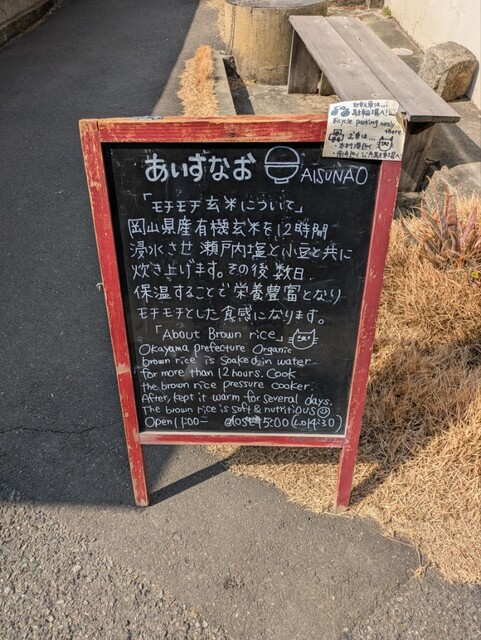 自転車は…
Bicycle parking
there
お車は…
あいすなお AISUNAO
「モチモチ玄米について」
岡山県産有機玄米を12時間
浸水させ 瀬戸内塩と小豆と共に
炊き上げます。その後数日
保温することで栄養豊富となり
モチモチとした食感になります。
「About Brown rice」
Okayama prefecture Organic
brown rice is soaked in water
for more than 12 hours. Cook
the brown rice pressure cooker.
After, kept it warm for several days.
The brown rice is soft & nutritious
Open 11:00- close15:00 (L.O14:30)